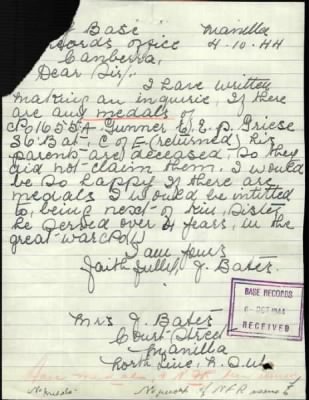 Base Manilla
Records Office 4-10-44
Canberra.
Dear Sir/.
I have written
making an inquirie, If there
are any medals of
No 1655A. Gunner C. E. P. Griese
36 Bat. C of E (returned) his
parents are deceased, so they
did not claim them, I would
be so happy if there are
medials I would be intitled
to, being next of Kin, Sister
he served over 4 years, in the
great war
I am yours
faithfully J. Bates.
Mrs J. Bates
Court Street
Manilla
North Line, N.S.W.
BASE RECORDS
6 - OCT 1944
RECEIVED
No medals
No record of NFR